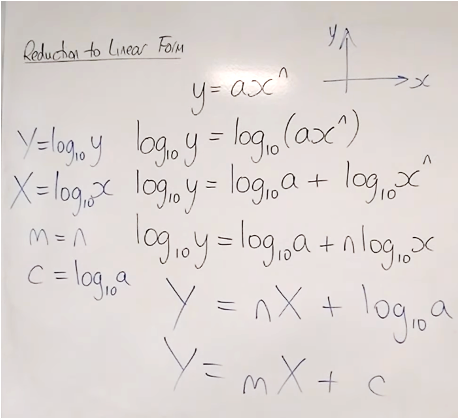 Reduction to Linear Form
y
x
y = axⁿ
Y=log₁₀y
log₁₀y = log₁₀(axⁿ)
X=log₁₀x
log₁₀y = log₁₀a + log₁₀xⁿ
m = n
log₁₀y = log₁₀a + nlog₁₀x
c = log₁₀a
Y = nX + log₁₀a
Y = mX + c